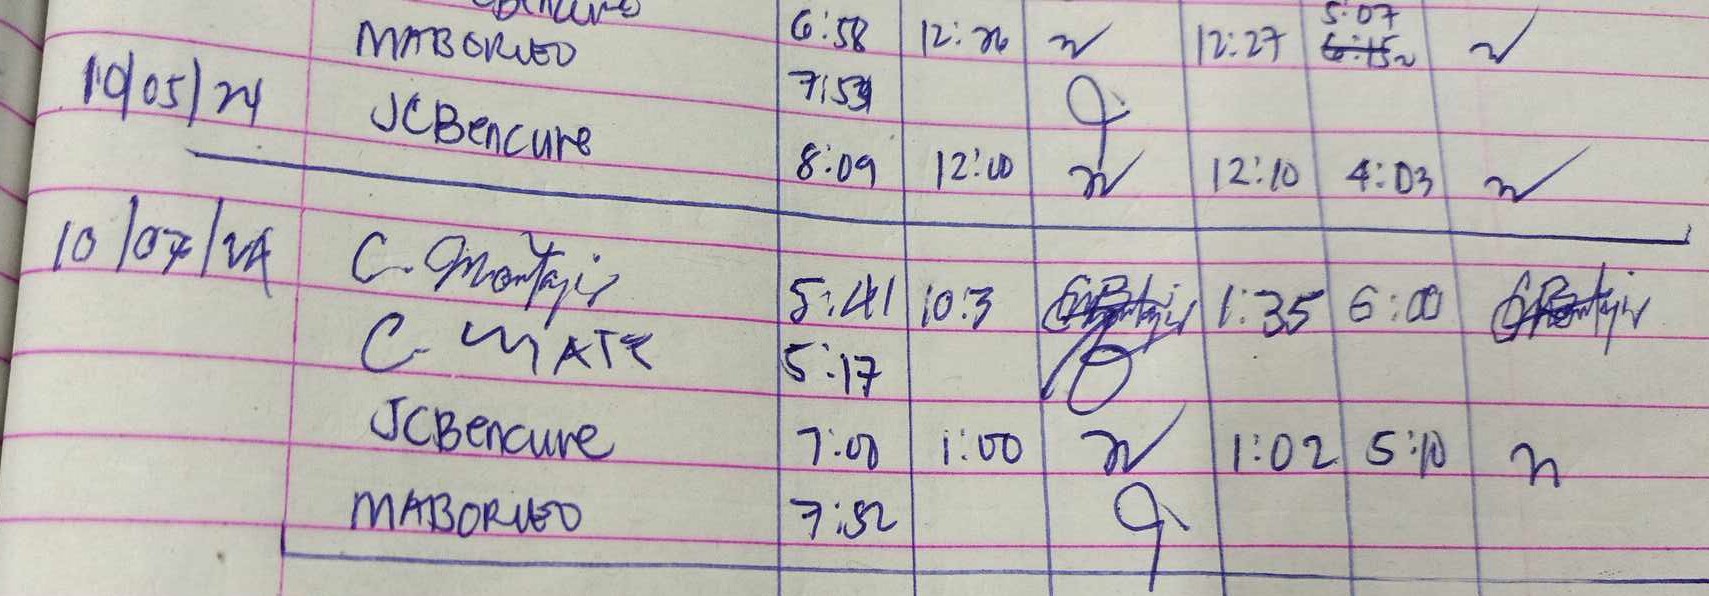 6:58 12:26 12:27 5:07
MABORUEO 7:53
10/05/24 JCBencure 8:09 12:00 12:10 4:03
10/07/24 C. Montajis 5:41 10:3 1:35 6:00
C. MATE 5:17
JCBencure 7:00 1:00 1:02 5:10
MABORUEO 7:52